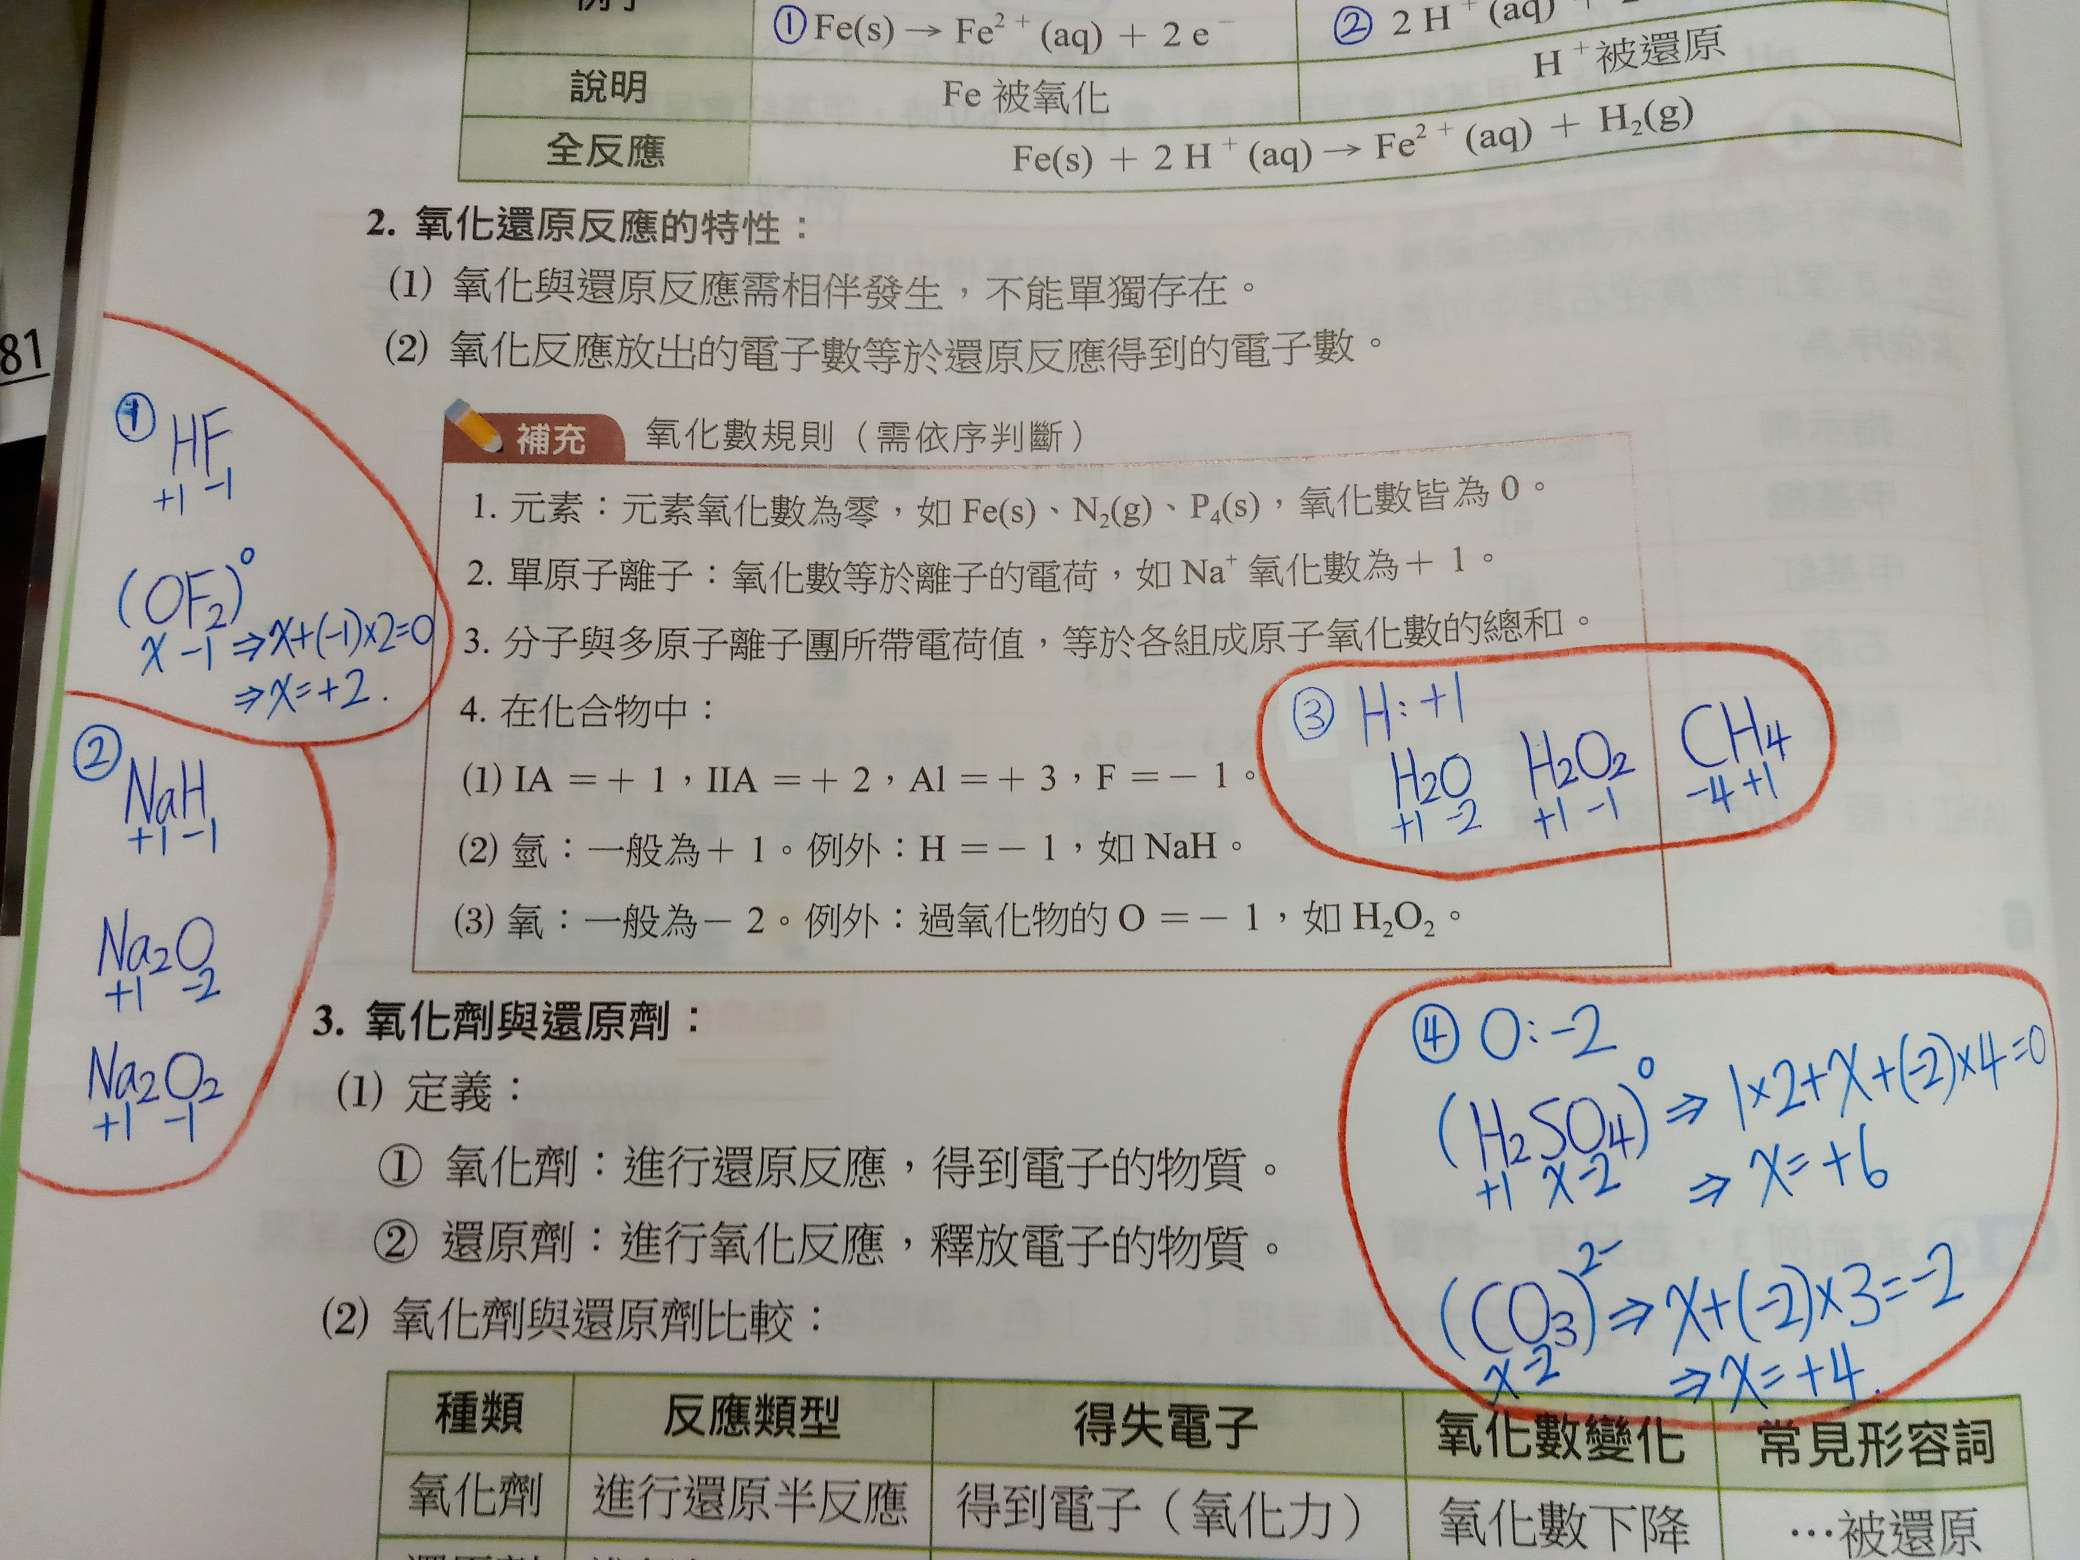 ① Fe(s) → Fe²⁺ (aq) + 2 e⁻
② 2 H⁺ (aq) +
說明
Fe 被氧化
H⁺ 被還原
全反應
Fe(s) + 2 H⁺ (aq) → Fe²⁺ (aq) + H₂(g)
2. 氧化還原反應的特性：
(1) 氧化與還原反應需相伴發生，不能單獨存在。
(2) 氧化反應放出的電子數等於還原反應得到的電子數。
81
① HF
+1 -1
(OF₂)⁰
x -1 ⇒ x+(-1)×2=0
⇒ x=+2.
② NaH
+1 -1
Na₂O
+1 -2
Na₂O₂
+1 -1
補充 氧化數規則（需依序判斷）
1. 元素：元素氧化數為零，如 Fe(s)、N₂(g)、P₄(s)，氧化數皆為 0。
2. 單原子離子：氧化數等於離子的電荷，如 Na⁺ 氧化數為＋ 1。
3. 分子與多原子離子團所帶電荷值，等於各組成原子氧化數的總和。
4. 在化合物中：
(1) IA ＝＋ 1，IIA ＝＋ 2，Al ＝＋ 3，F ＝－ 1。
(2) 氫：一般為＋ 1。例外：H ＝－ 1，如 NaH。
(3) 氧：一般為－ 2。例外：過氧化物的 O ＝－ 1，如 H₂O₂。
③ H: +1
H₂O H₂O₂ CH₄
+1 -2 +1 -1 -4 +1
3. 氧化劑與還原劑：
(1) 定義：
① 氧化劑：進行還原反應，得到電子的物質。
② 還原劑：進行氧化反應，釋放電子的物質。
(2) 氧化劑與還原劑比較：
④ O: -2
(H₂SO₄)⁰ ⇒ 1×2+x+(-2)×4=0
+1 x -2 ⇒ x=+6
(CO₃)²⁻ ⇒ x+(-2)×3=-2
x -2 ⇒ x=+4.
種類 反應類型 得失電子 氧化數變化 常見形容詞
氧化劑 進行還原半反應 得到電子（氧化力） 氧化數下降 …被還原